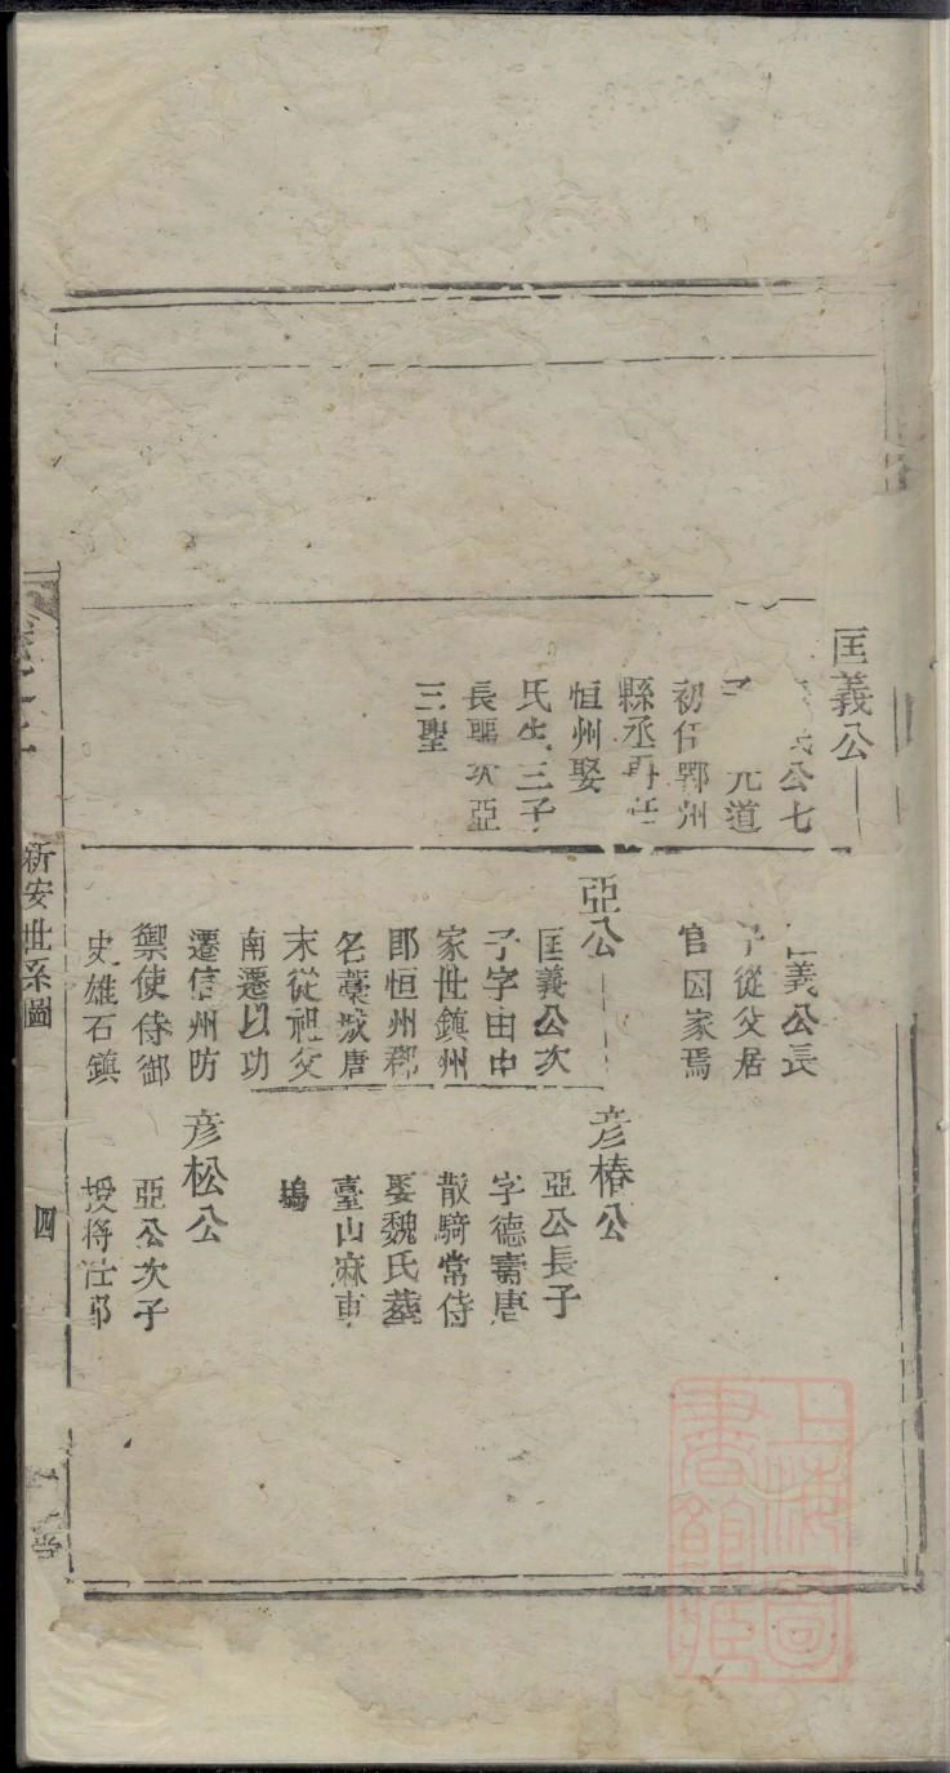 匡義公
公七
元道
初任鄂州
縣丞再任
恒州娶
氏生三子
長聖次亞
三聖
義公長
子從父居
官因家焉
亞公
匡義公次
子字由中
家世鎮州
即恒州郡
名藁城唐
末從祖父
南遷以功
遷信州防
禦使侍御
史雄石鎮
彦椿公
亞公長子
字德壽唐
散騎常侍
娶魏氏葬
臺山麻車
塢
彦松公
亞公次子
授將仕郎
新安世系圖
四
上海圖
書館藏